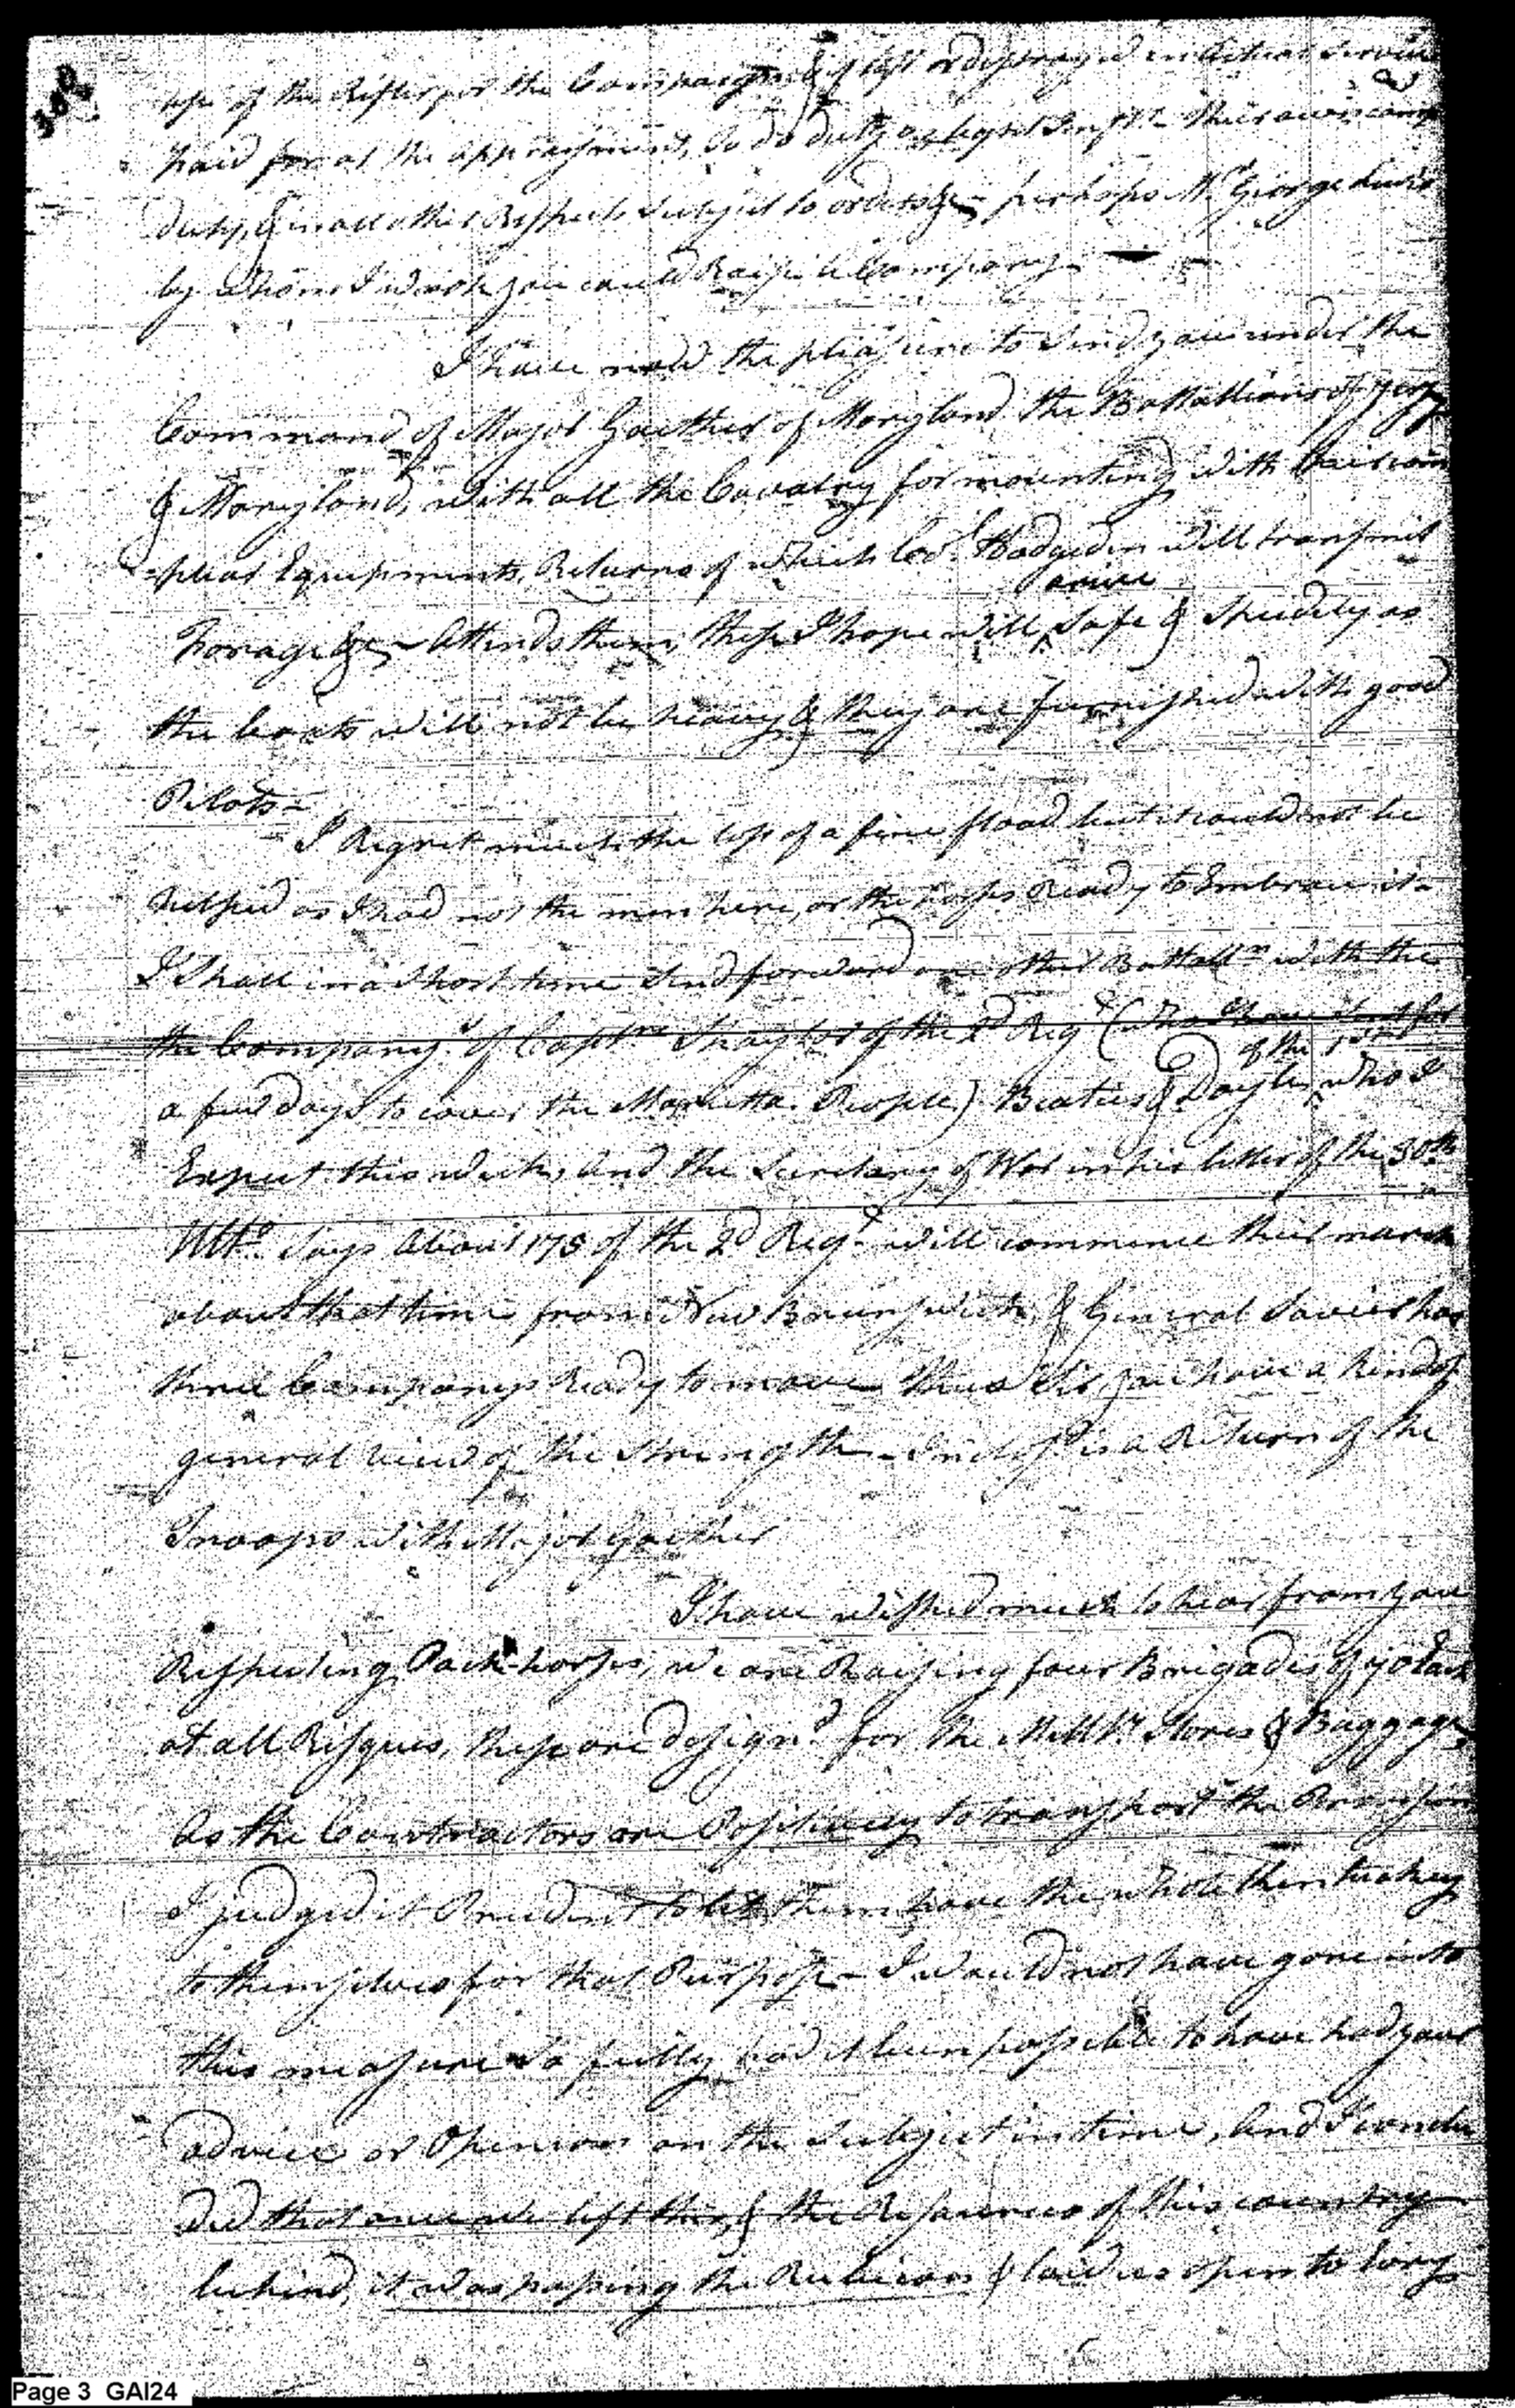 302
use of the Rifles for the Campaign & if lost or destroyed in Actual Service
paid for at the appraisment, to do duty as light Infty. their own camp
duty, & in all other Respects subject to orders &c, perhaps Mr. George Lewis
by whom I wish you could Raise a Company —
I have now the pleasure to send you under the
Command of Major Gaither of Maryland the Battallions of Jersy
& Maryland, with all the Cavalry for mounting with their com
-pleat Equipments, Returns of which Col. Hodgedon will transmit
Forage &c — Attends them, these I hope will arrive safe & Speedily as
the boats will not be heavy & they are furnished with good
Pilots —
I Regret much the loss of a fine flood but it could not be
helped as I had not the men here, or the horses Ready to Embrace it —
I Shall in a Short time send forward one other Battalln. with the
the Companys of Captns. Shaylor of the 2d Regt. (who I have sent for
a few days to cover the Marietta People) Beaties & Doyle of the 1st who I
Expect this week, and the Secretary of War in his letter of the 30th
Ulto. Says About 175 of the 2d Regt. will commence their march
about that time from New Brunswick, & General Sevier has
three Companys Ready to move thus Sir you have a kind of
general view of the Strength — Inclosd. is a Return of the
Troops with Major Gaither
I have wished much to hear from you
Respecting Pack-horses, we are Raising four Brigades of 70 Each
at all Risques, these are design'd for the Millty. Stores & Baggage,
As the Contractors are Positively to transport the Provision
I judged it Prudent to let them have the whole Kentuckey
to themselves for that Purpose — I would not have gone into
this measure so fully had it been possible to have had your
advice or Openion on the Subject in time, And I conclu
ded that once we left this, & the Resources of this country
behind, it was passing the Rubicon & laid us open to Evry
Page 3 GAI24